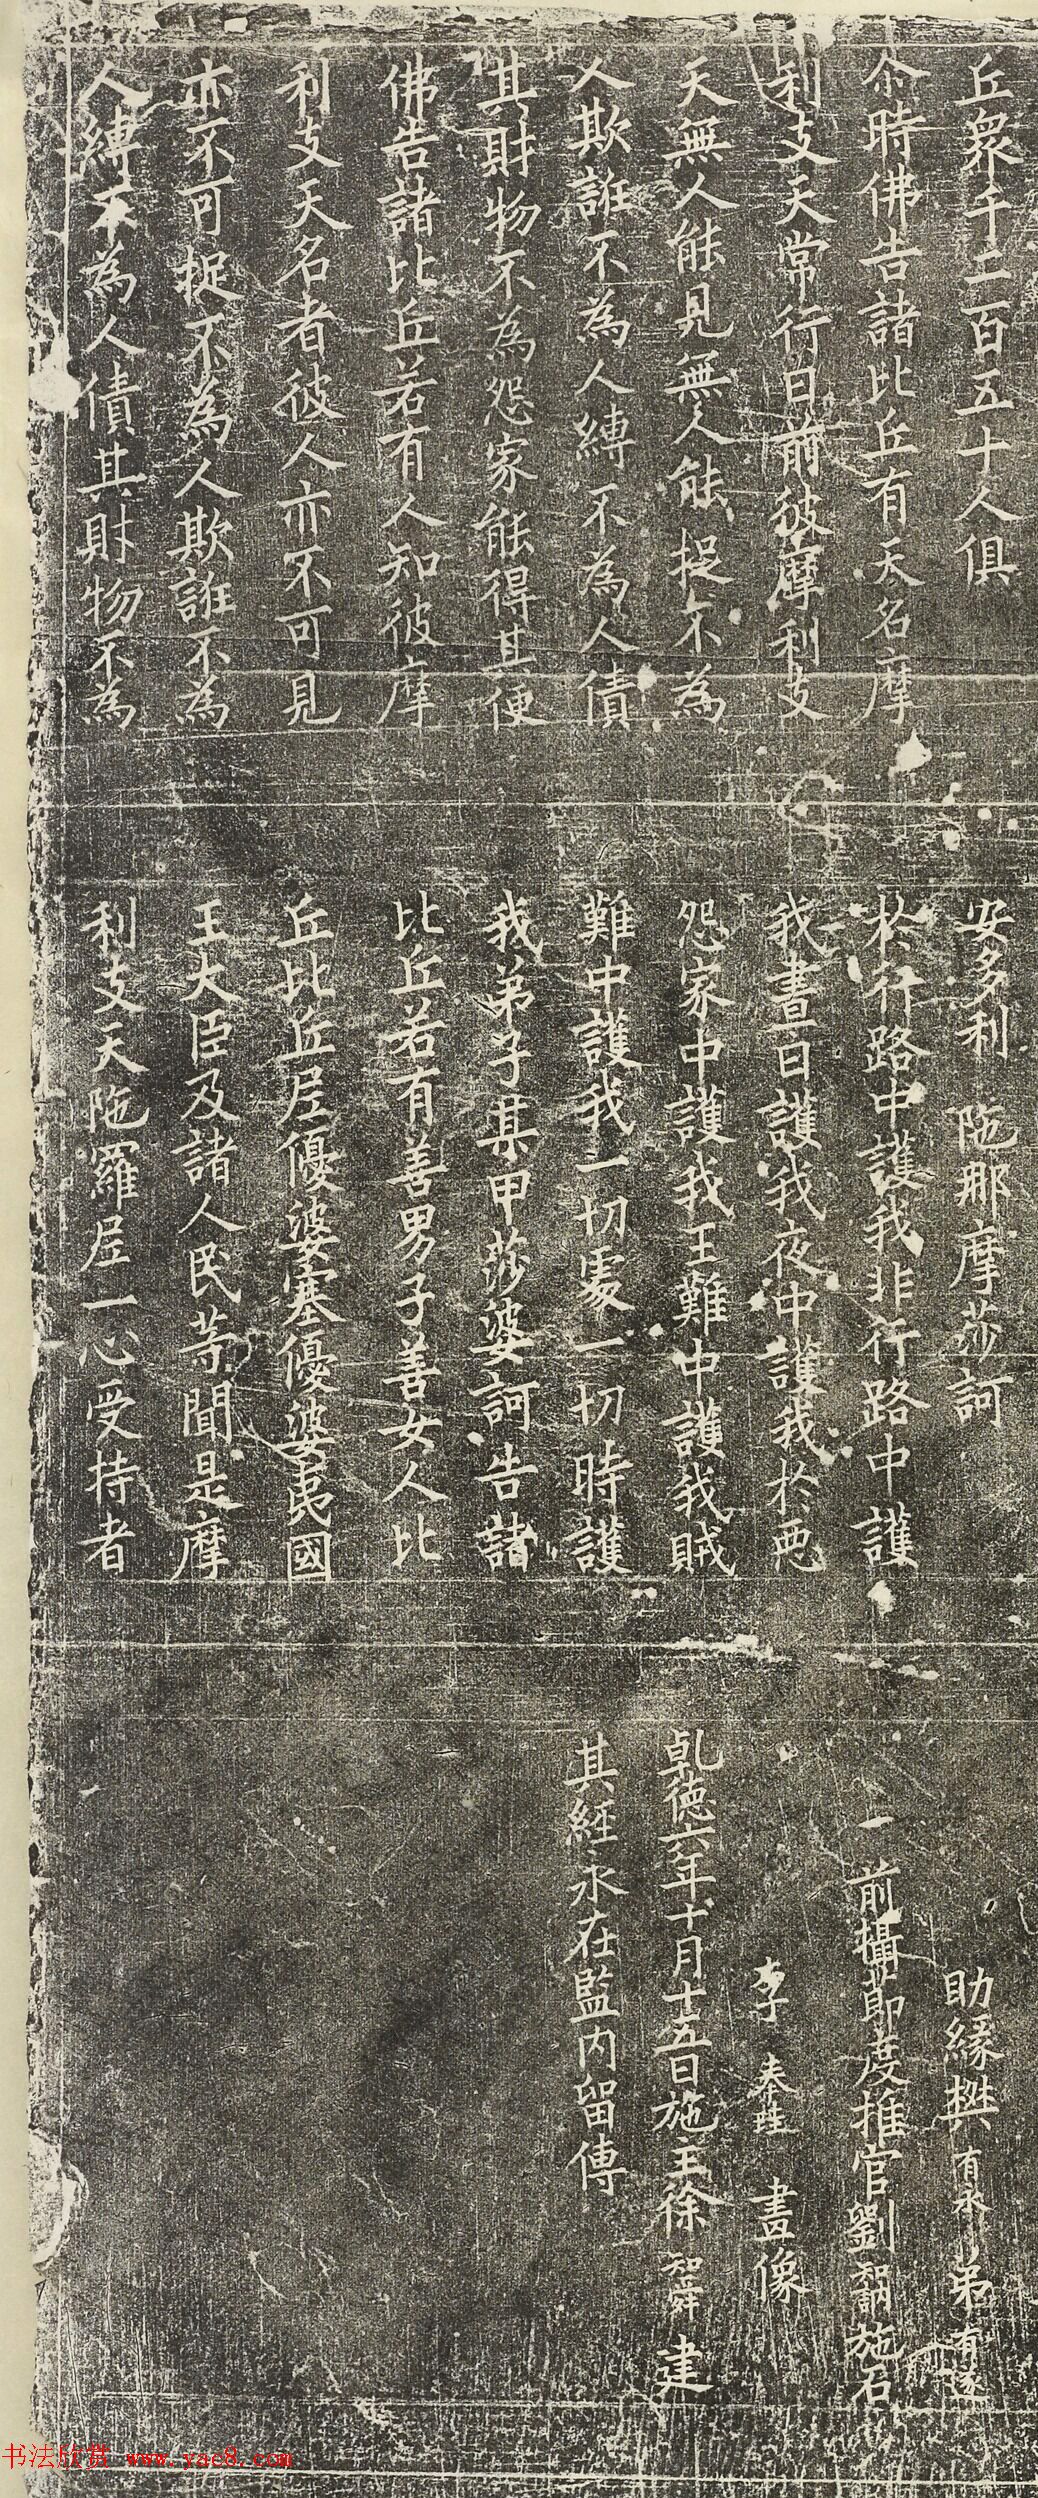 丘衆千二百五十人俱
尒時佛告諸比丘有天名摩
利支天常行日前彼摩利支
天無人能見無人能捉不為
人欺誑不為人縛不為人債
其財物不為怨家能得其便
佛告諸比丘若有人知彼摩
利支天名者彼人亦不可見
亦不可捉不為人欺誑不為
人縛不為人債其財物不為
安多利 陁那摩莎訶
於行路中護我非行路中護
我晝日護我夜中護我於𢙣
怨家中護我王難中護我賊
難中護我一切處一切時護
我弟子某甲莎婆訶告諸
比丘若有善男子善女人比
丘比丘尼優婆塞優婆夷民國
王大臣及諸人民等聞是摩
利支天陁羅尼一心受持者
助緣樊有永弟有遂
前攝節度推官劉智訥施石
李奉珪 畫像
乹德六年十月十五日施主徐智舜建
其經永在監內留傳
书法欣赏 www.yac8.com